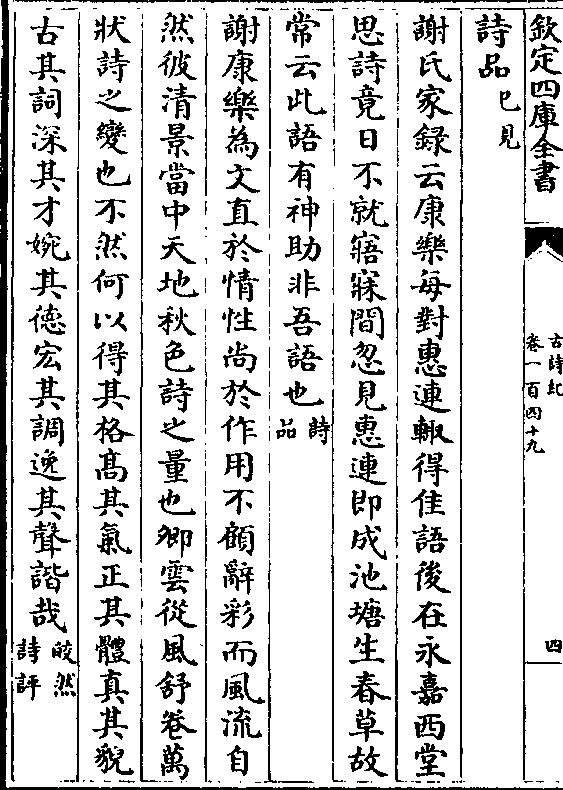 欽定四庫全書
古詩紀
卷一百四十九
四
詩品已見
謝氏家錄云康樂每對惠連輙得佳語後在永嘉西堂
思詩竟日不就寤寐間忽見惠連即成池塘生春草故
常云此語有神助非吾語也詩品
謝康樂為文直於情性尚於作用不顧辭彩而風流自
然彼清景當中天地秋色詩之量也卿雲從風舒卷萬
狀詩之變也不然何以得其格高其氣正其體真其貌
古其詞深其才婉其德宏其調逸其聲諧哉皎然詩評